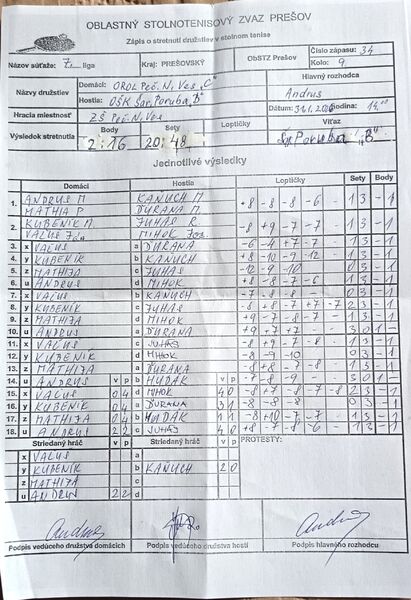 OBLASTNÝ STOLNOTENISOVÝ ZVÄZ PREŠOV
Zápis o stretnutí družstiev v stolnom tenise
Názov súťaže: 7. liga Kraj: PREŠOVSKÝ ObSTZ Prešov Číslo zápasu: 34
Kolo: 9
Názvy družstiev Domáci: OROL Peč. N. Ves „C“ Hlavný rozhodca
Hostia: OŠK Šar. Poruba „B“ Andrus
Hracia miestnosť ZŠ Peč. N. Ves Dátum: Hodina: 14,00
Výsledok stretnutia Body Sety Loptičky Víťaz
2:16 20:48 Šar. Poruba „B“
Jednotlivé výsledky
Domáci Hostia Loptičky Sety Body
1. ANDRUS M KAŇUCH M +8 -8 -8 -6 - 1 3 -1
MATHIA P ĎURAŇA M
2. KUBENÍK M JUHAS R -8 +9 -7 -7 - 1 3 -1
VALUS MIHOK
3. x VALUS a ĎURAŇA -6 -4 +7 -7 - 1 3 -1
4. y KUBENÍK b KAŇUCH +8 -10 -9 -12 - 1 3 -1
5. z MATHIJA c JUHAS -12 -9 -10 0 3 -1
6. u ANDRUS d MIHOK +8 -8 -7 -6 1 3 -1
7. x VALUS b KAŇUCH -7 -8 -8 0 3 -1
8. y KUBENÍK c JUHAS -8 +8 -7 +7 -7 2 3 -1
9. z MATHIJA d MIHOK +9 -7 -8 -7 - 1 3 -1
10. u ANDRUS a ĎURAŇA +9 +7 +7 - 3 0 1 -
11. x VALUS c JUHAS -8 +9 -7 -8 1 3 -1
12. y KUBENÍK d MIHOK -8 -9 -10 0 3 -1
13. z MATHIJA a ĎURAŇA -8 +8 -7 -8 1 3 -1
14. u ANDRUS v p b HUDÁK v p 3 0 1 -
15. x VALUS 0 4 d MIHOK 4 0 -8 +7 -8 +7 -8 2 3 -1
16. y KUBENÍK 0 4 a ĎURAŇA 3 1 -8 -8 -8 0 3 -1
17. z MATHIJA 0 4 b HUDÁK 1 1 -8 +10 -7 -7 1 3 -1
18. u ANDRUS 2 2 c JUHAS 4 0 +8 -7 -8 -6 1 3 -1
Striedaný hráč v p Striedaný hráč v p PROTESTY:
x VALUS a
y KUBENÍK b KAŇUCH 2 0
z MATHIJA c
u ANDRUS 2 2 d
Podpis vedúceho družstva domácich Podpis vedúceho družstva hostí Podpis hlavného rozhodcu